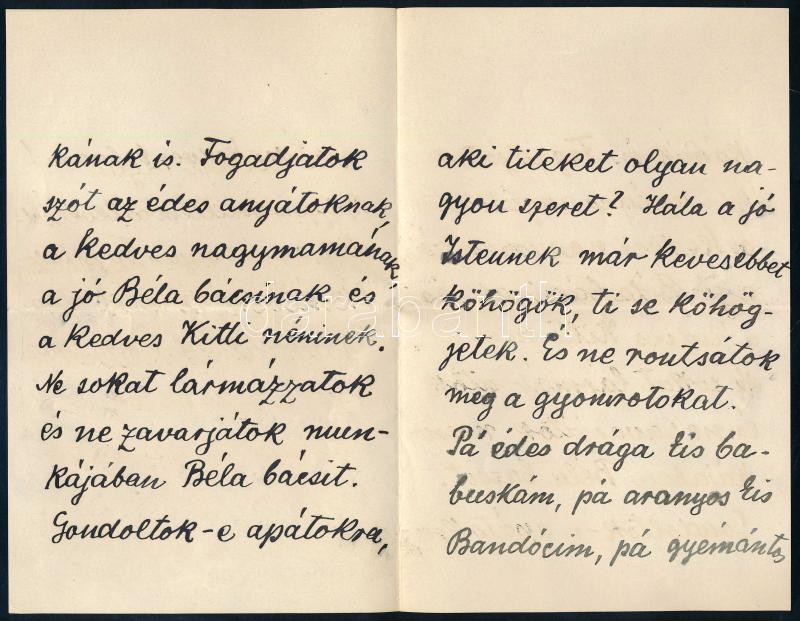 kának is. Fogadjatok
szót az édes anyátoknak,
a kedves nagymamának,
a jó Béla bácsinak és
a kedves Kitli néninek.
Ne sokat lármázzatok
és ne zavarjátok mun-
kájában Béla bácsit.
Gondoltok-e apátokra,
aki titeket olyan na-
gyon szeret? Hála a jó
Istennek már kevesebbet
köhögök, ti se köhög-
jetek. És ne rontsátok
meg a gyomrotokat.
Pá édes drága kis ba-
buskám, pá aranyos kis
Bandócim, pá gyémántos
darabanth